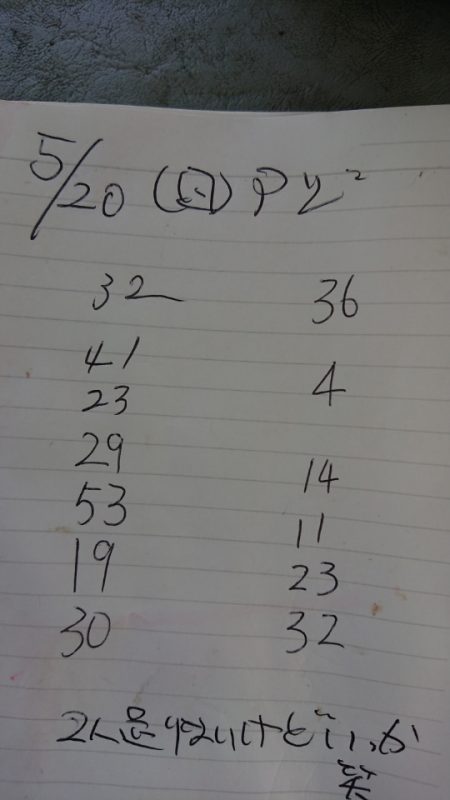 5/20 (日) P
32 36
41
23 4
29
53 14
19 11
30 23
32
2人足りないけどいっか
笑